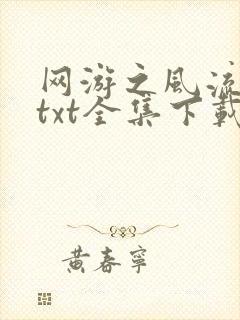 网游之风流
txt全集下载
黄春宁